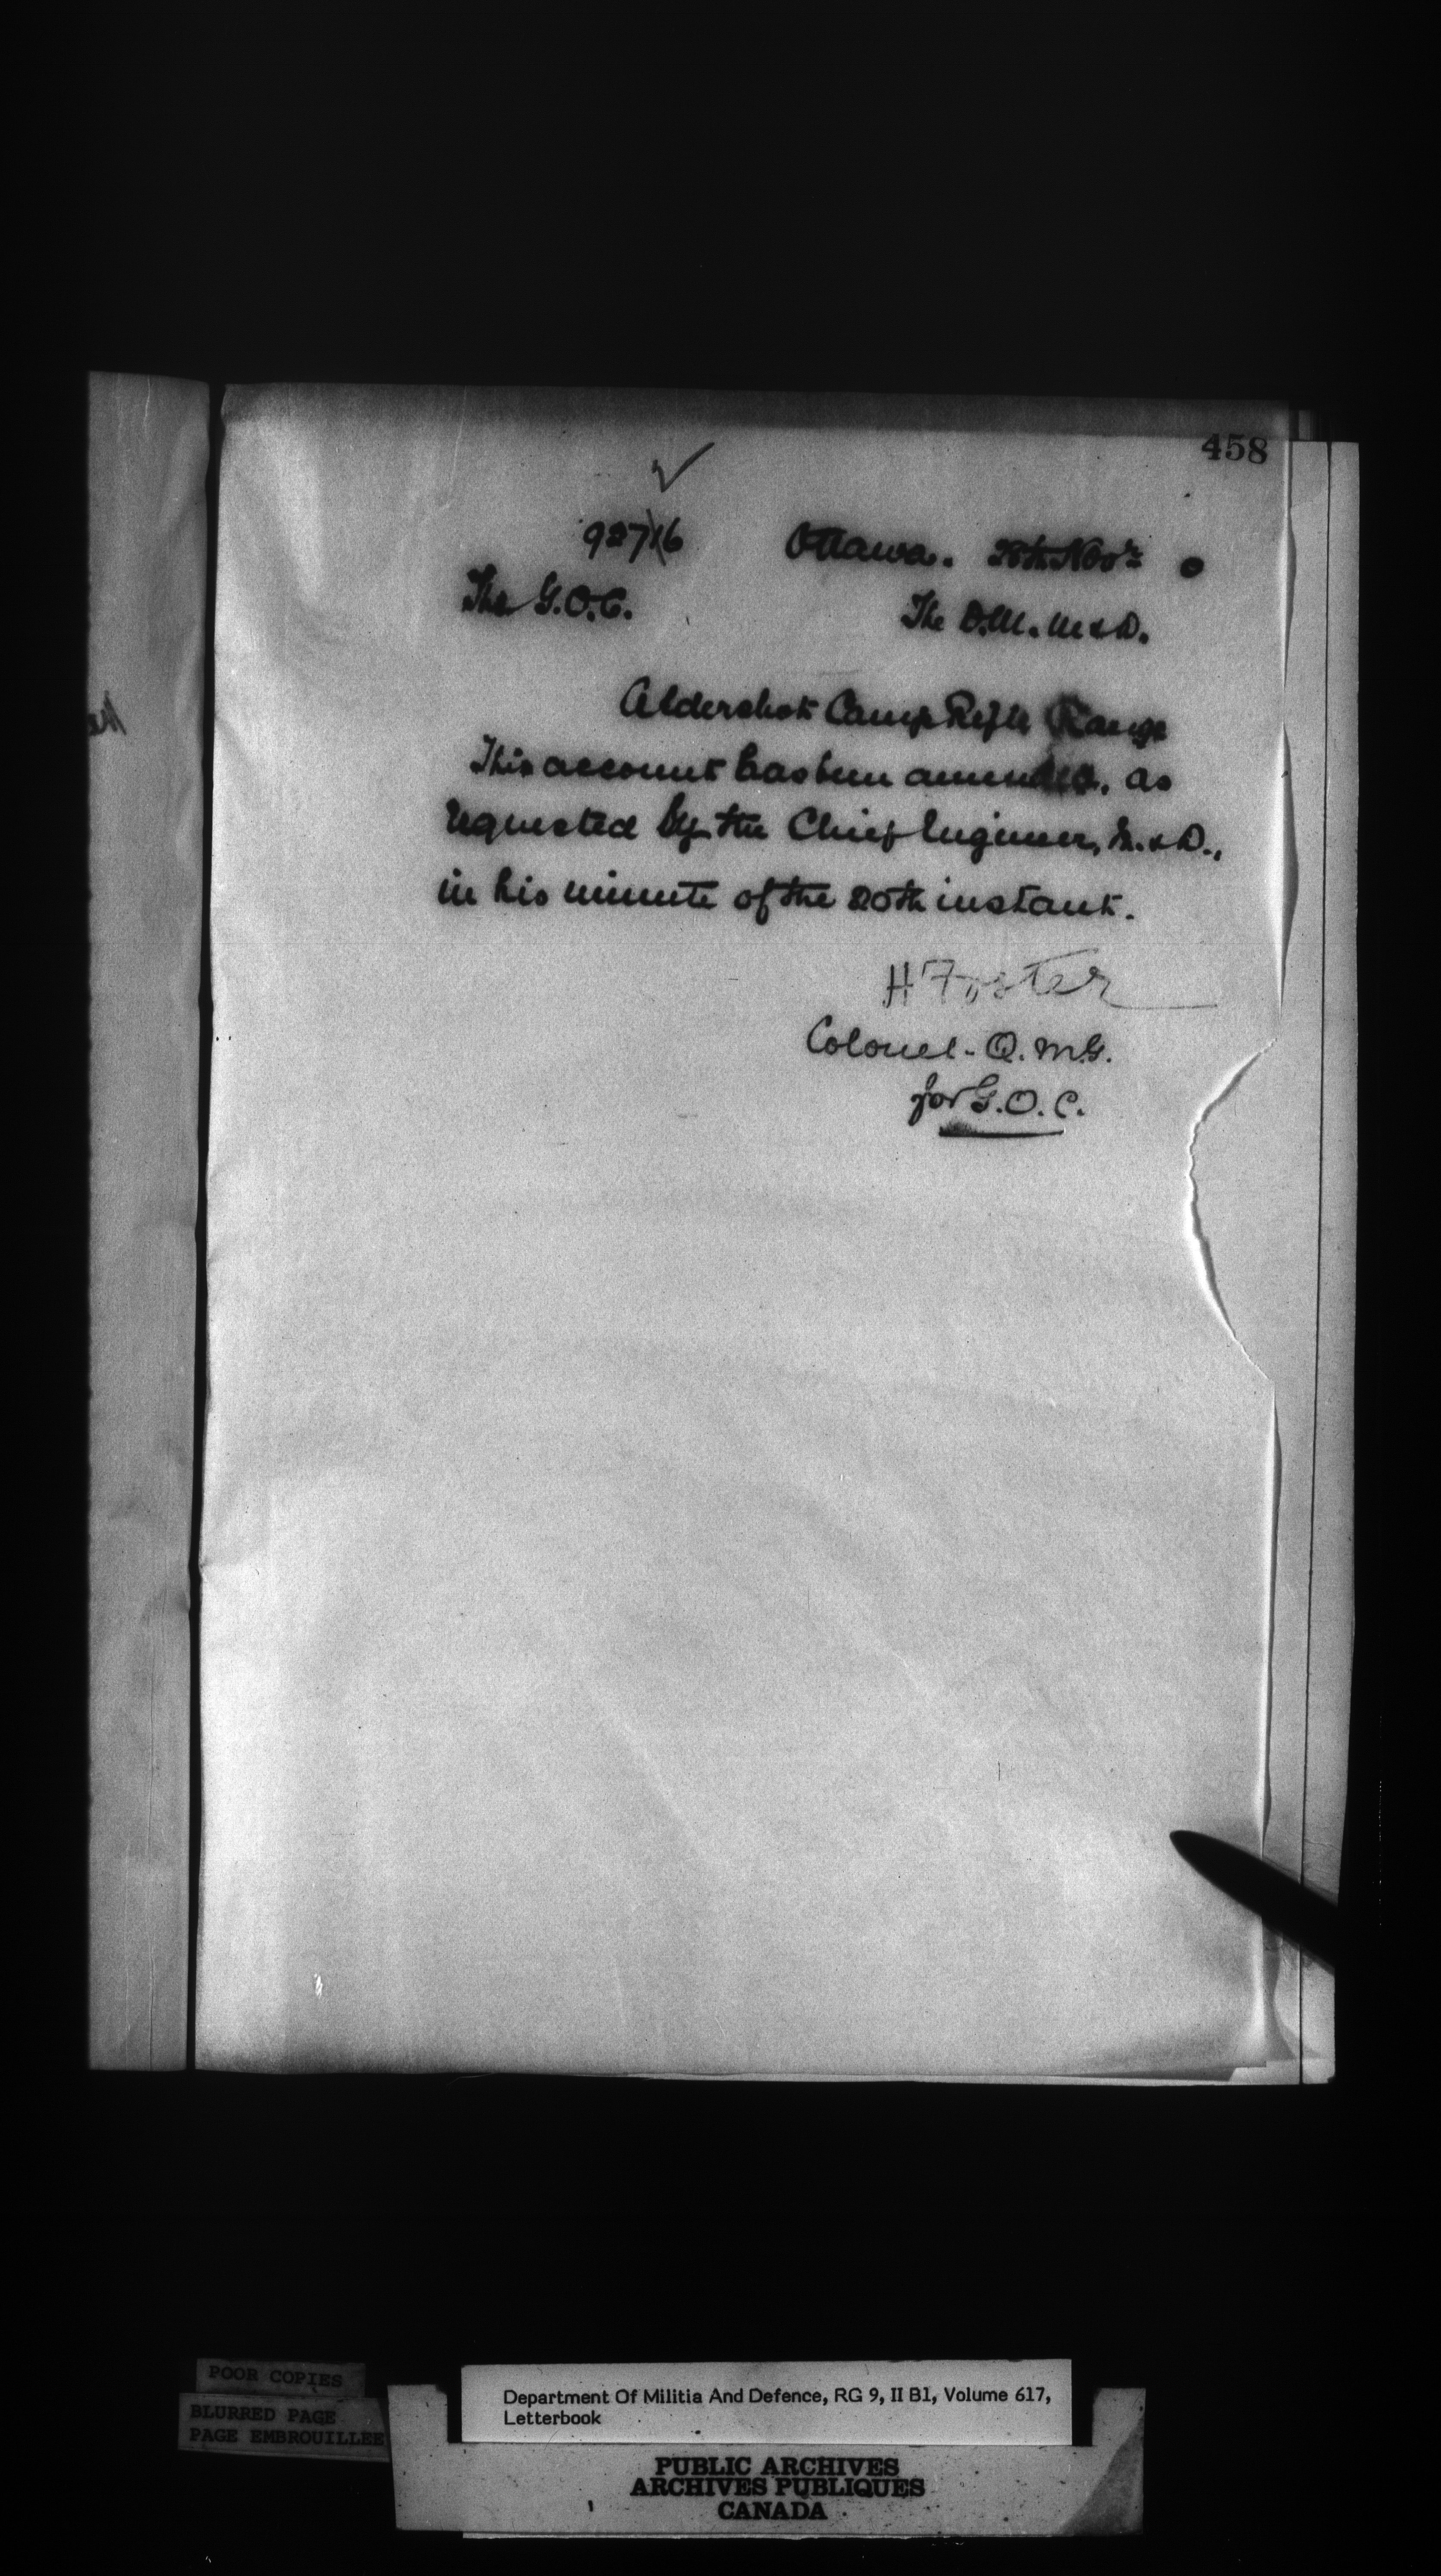 458
The G.O.C.
Ottawa. 28th Novr. 0
The D.M. M & D.
Aldershot Camp Rifle Range
This account has been amended, as
requested by the Chief Engineer, M. & D.,
in his minute of the 20th instant.
H Foster
Colonel - Q.M.G.
for G.O.C.
POOR COPIES
BLURRED PAGE
PAGE EMBROUILLEE
Department Of Militia And Defence, RG 9, II B1, Volume 617,
Letterbook
PUBLIC ARCHIVES
ARCHIVES PUBLIQUES
CANADA